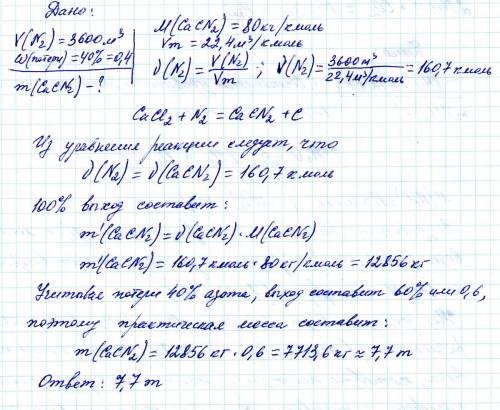 Дано:
V(N₂)=3600 м³
ω(потери)=40%=0,4
m(CaCN₂)-?
M(CaCN₂)=80 кг/кмоль
Vm=22,4 м³/кмоль
ϑ(N₂)=V(N₂)/Vm ; ϑ(N₂)=3600 м³/22,4 м³/кмоль=160,7 кмоль
CaCl₂+N₂=CaCN₂+C
Из уравнения реакции следует, что
ϑ(N₂)=ϑ(CaCN₂)=160,7 кмоль
100% выход составит:
m'(CaCN₂)=ϑ(CaCN₂)·M(CaCN₂)
m'(CaCN₂)=160,7 кмоль·80 кг/кмоль=12856 кг
Учитовая потери 40% азота, выход составит 60% или 0,6,
поэтому практическая масса составит:
m(CaCN₂)=12856 кг·0,6=7713,6 кг≈7,7 т
Ответ: 7,7 т